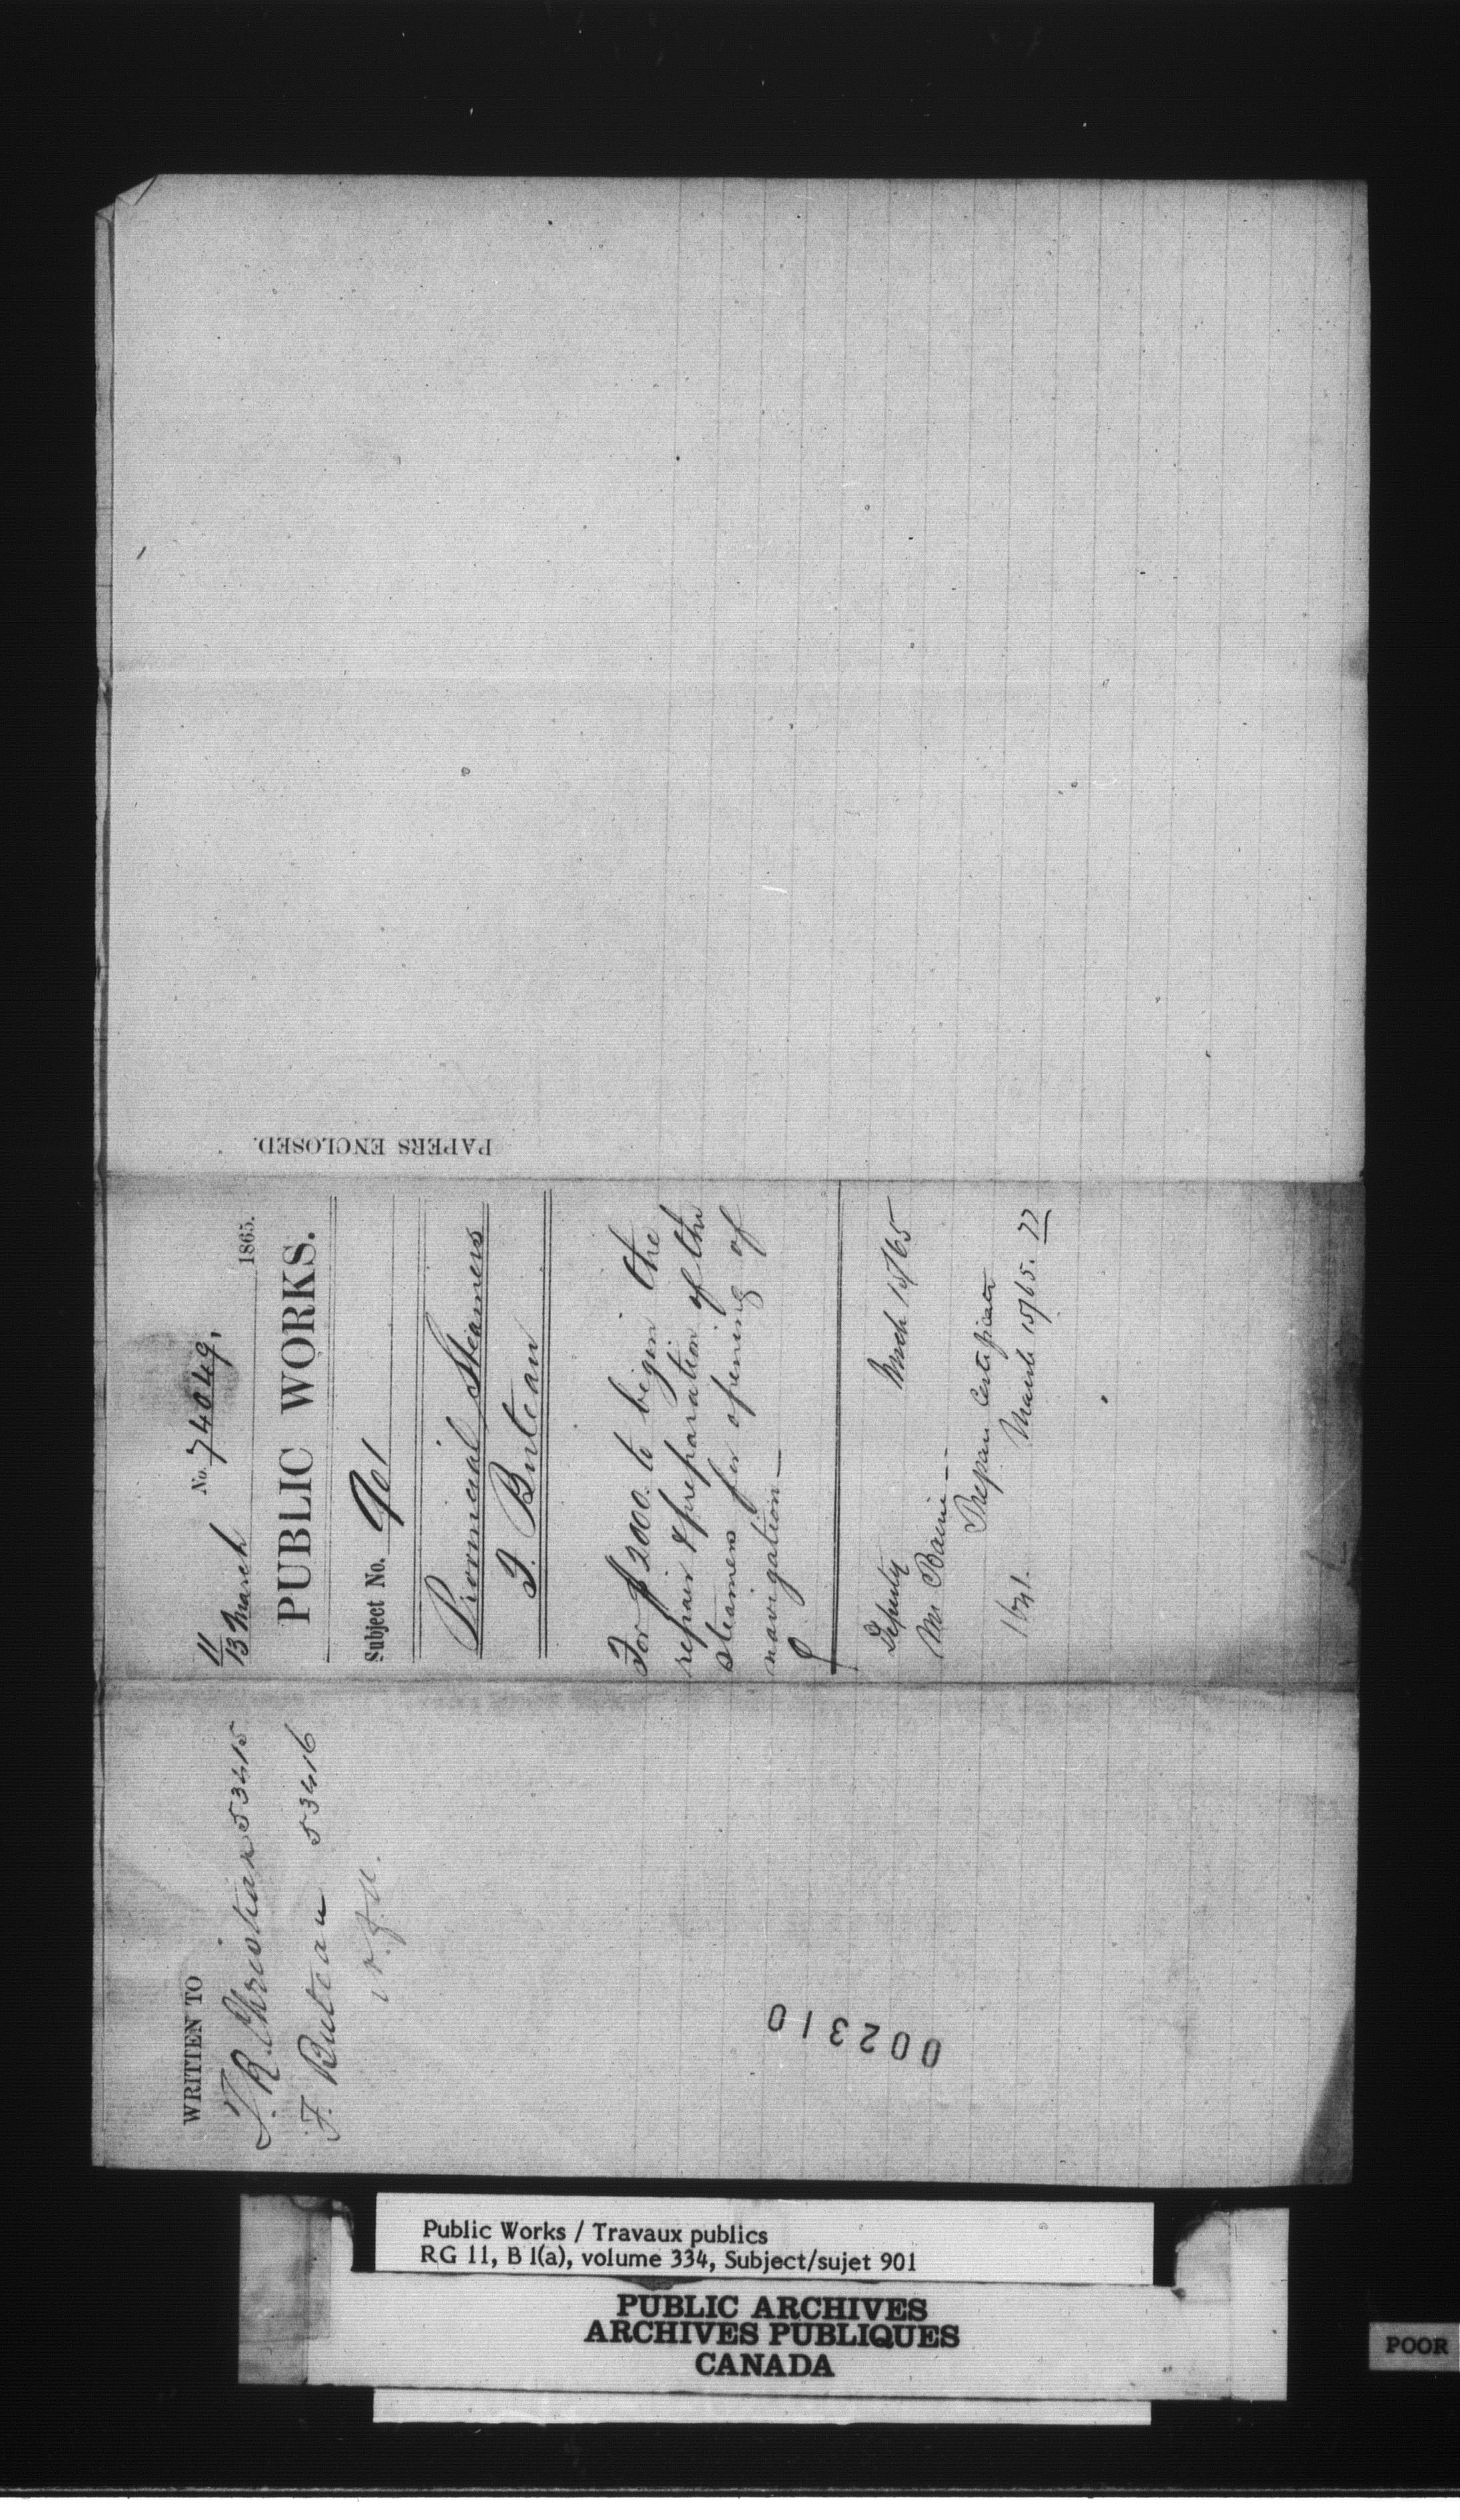 WRITTEN TO
T. R. Christian 53415
F. Buteau 53416
11
13 March
No. 74049,
1865.
PUBLIC WORKS.
Subject No. 901
Provincial Steamers
F. Buteau
For $2000. to begin the
repair & preparation of the
steamers for opening of
navigation—
Deputy March 15/65
Mr Baine—
Prepare Certificate
March 15/65.
1641.
PAPERS ENCLOSED.
002310
Public Works / Travaux publics
RG 11, B 1(a), volume 334, Subject/sujet 901
PUBLIC ARCHIVES
ARCHIVES PUBLIQUES
CANADA
POOR